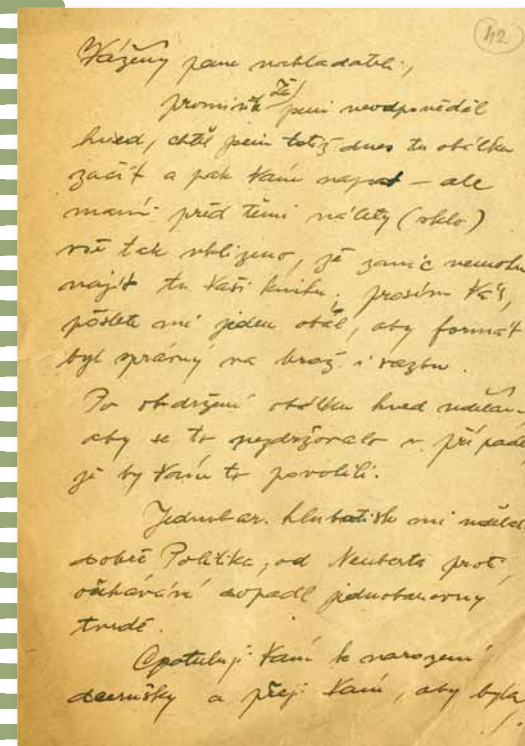 42
Vážený pane nakladateli,
promiňte že jsem neodpověděl
hned, chtěl jsem totiž dnes tu obálku
začít a pak Vám napsat – ale
mamí před těmi nálety (sklo)
vše tak uklizeno, že zanic nemohu
najít tu Vaši knihu; prosím Vás,
pošlete mi jeden obál, aby formát
byl správný na brož i vazbu.
Po obdržení obálku hned udělám,
aby se to nezdržovalo v případě
že by Vám to povolili.
Jednobar. hlubotisk mi udělala
dobře Politika, od Neuberta proti
očekávání dopadl jednobarevný
tvrdě.
Gratuluji Vám k narození
dcerušky a přeji Vám, aby byla